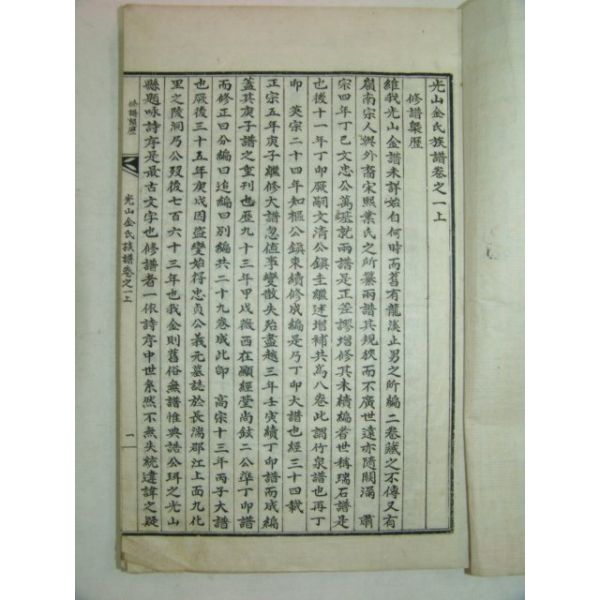 光山金氏族譜卷之一上
修譜槩歷
維我光山金譜未詳始自何時而舊有龍溪止男之所編二卷藏之不傳又有
嶺南宗人與外裔宋照業氏之所纂兩譜其規狹而不廣世遠亦隨闕漏 肅
宗四年丁巳文忠公萬基就兩譜是正差謬增修其未續編者世稱瑞石譜是
也後十一年丁卯厥嗣文清公鎭圭繼述增補共爲八卷此謂竹泉譜也再丁
卯 英宗二十四年知樞公鎭東續修成編是乃丁卯大譜也經三十四載
正宗五年庚子繼修大譜忽值事變散失殆盡越三年壬寅續丁卯譜而成編
蓋其庚子譜之重刊也歷九十三年甲戌薇西在顯經堂尚鉉二公準丁卯譜
而修正曰分編曰追編曰別編共二十九卷成此卽 高宗十三年丙子大譜
也厥後三十五年庚戌因盜變始得忠貞公義元墓誌於長湍郡江上面九化
里之陵洞乃公歿後七百六十三年也我金則舊俗無譜惟典誥公珥之光山
縣題咏詩序是最古文字也修譜者一依詩序中世系然不無失統違諱之疑
修譜槩歷
光山金氏族譜卷之一上
一